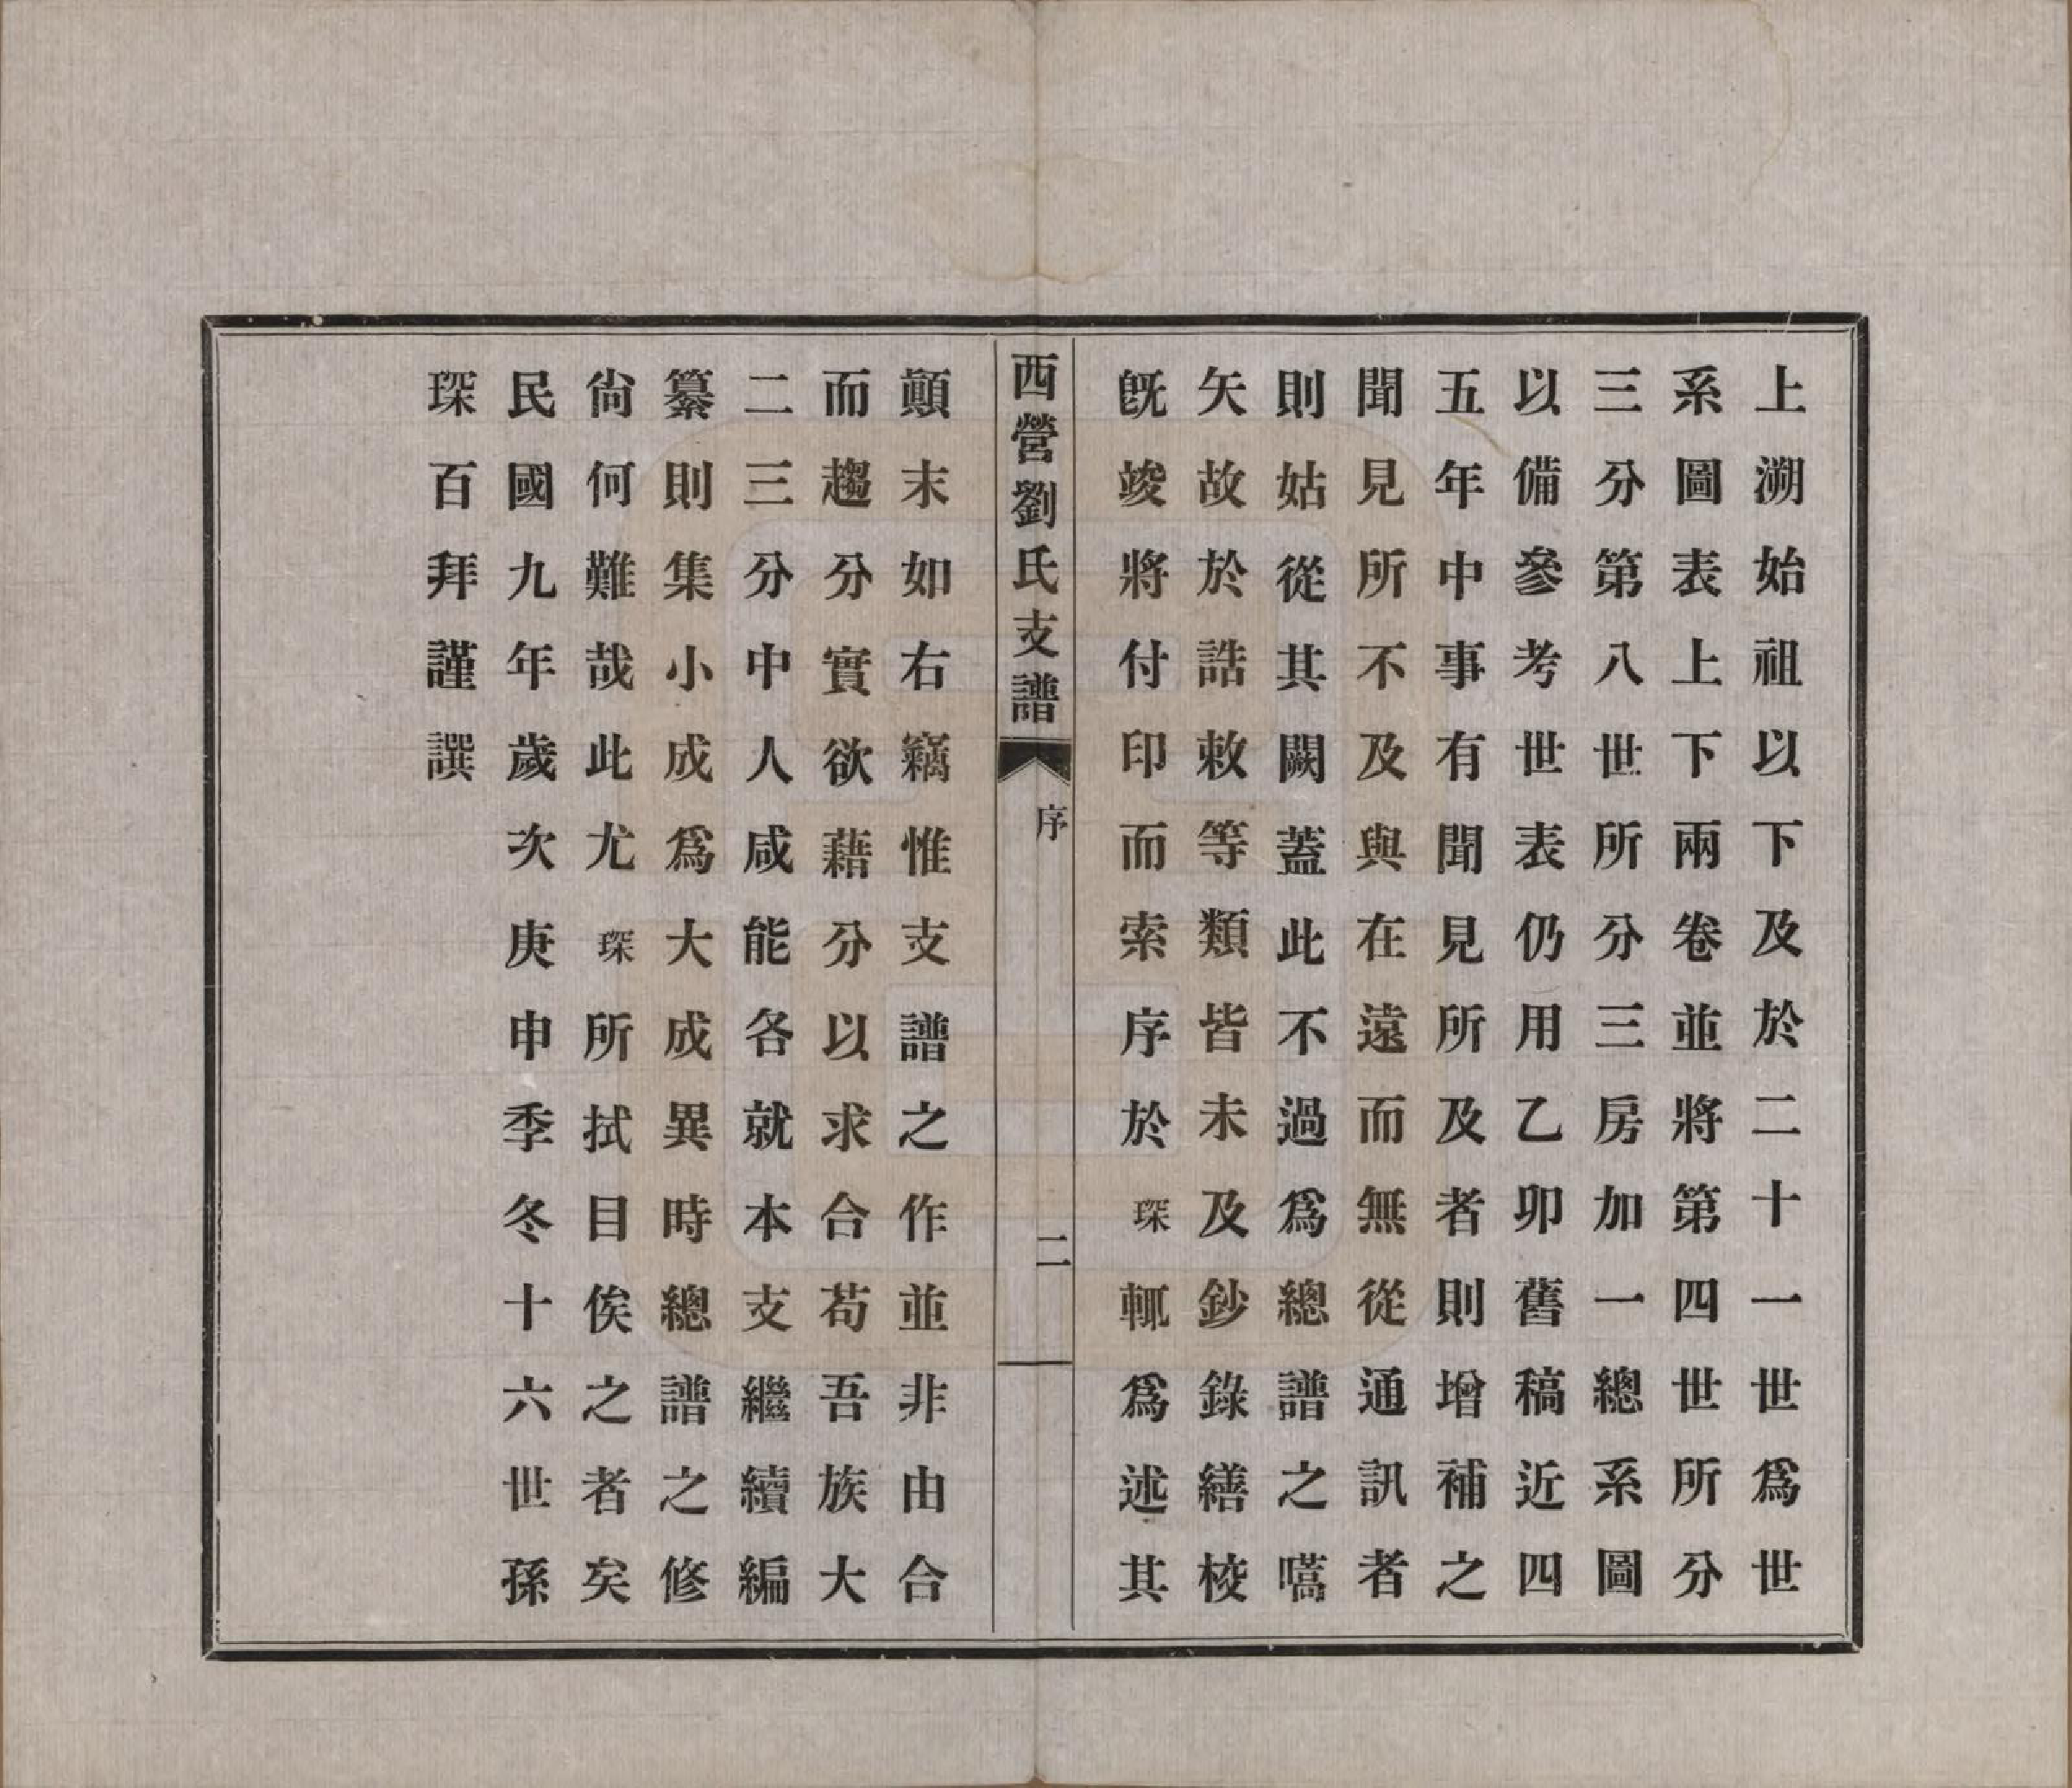 上溯始祖以下及於二十一世爲世
系圖表上下兩卷並將第四世所分
三分第八世所分三房加一總系圖
以備參考世表仍用乙卯舊稿近四
五年中事有聞見所及者則增補之
聞見所不及與在遠而無從通訊者
則姑從其闕蓋此不過爲總譜之嚆
矢故於誥敕等類皆未及鈔錄繕校
旣竣將付印而索序於琛輒爲述其
西營劉氏支譜
序
二
顚末如右竊惟支譜之作並非由合
而趨分實欲藉分以求合苟吾族大
二三分中人咸能各就本支繼續編
纂則集小成爲大成異時總譜之修
尙何難哉此尤琛所拭目俟之者矣
民國九年歲次庚申季冬十六世孫
琛百拜謹譔